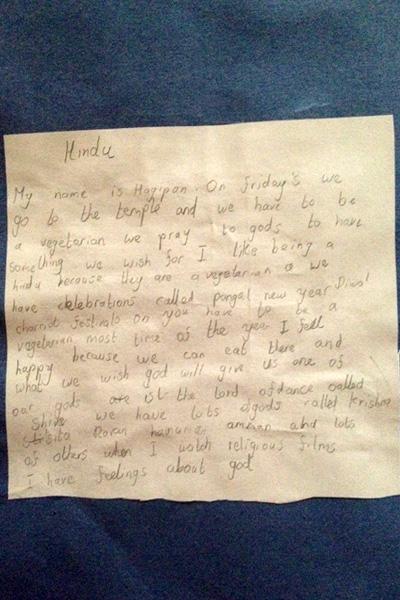 Hindu
My name is Hagipan. On Friday's we
go to the temple and we have to be
a vegetarian we pray to gods to have
something we wish for I like being a
hindu because they are a vegetarian we
have celebrations called pongal new year Diwal
chariot festivals on you have to be a
vegetarian most time of the year I fell
happy because we can eat there and
what we wish god will give us one of
our gods is the lord of dance called
Shiva we have lots of gods called krishna
hanuman amman and lots
of others when I watch religious films
I have feelings about god